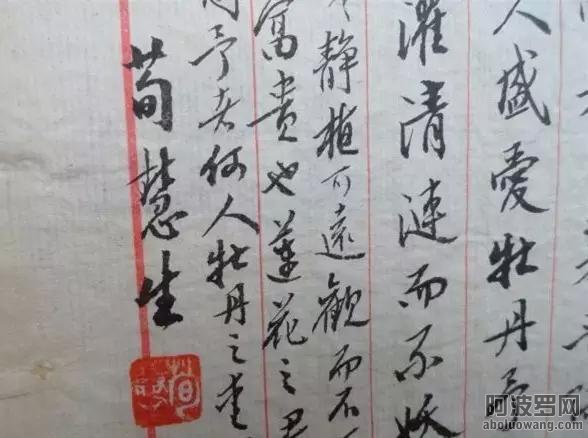 人盛愛牡丹予
濯清漣而不妖
静植可遠觀而不
富貴也蓮花之君
予者何人牡丹之爱
荀慧生
阿波罗网
aboluowang.com